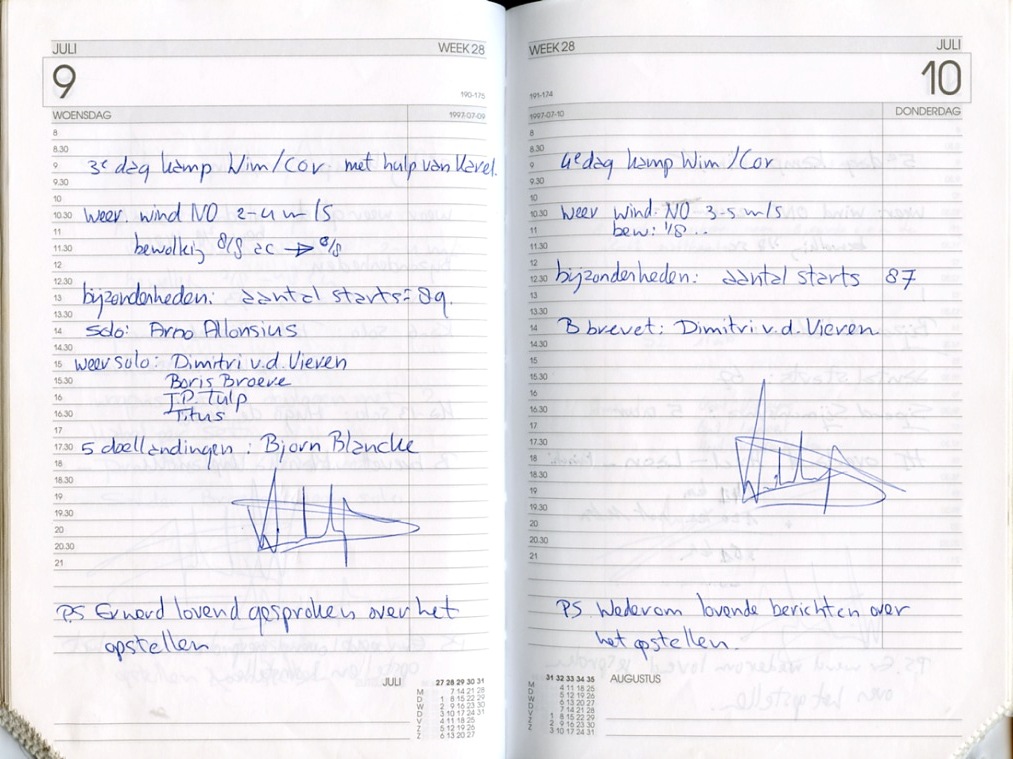 JULI WEEK 28
9
190-175
WOENSDAG 1997-07-09
8
8.30
9 3e dag kamp Wim/Cor met hulp van Karel.
9.30
10
10.30 weer. wind NO 2-4 m/s
11
11.30 bewolking 8/8 ac → 0/8
12
12.30
13 bijzonderheden: aantal starts = 89.
13.30
14 solo: Arno Allonsius
14.30
15 weer solo: Dimitri v.d. Vieven
15.30 Boris Broeve
16 J.P. Tulp
16.30 Titus
17
17.30 5 doellandingen: Bjorn Blancke
18
18.30
19
19.30
20
20.30
21
PS Er werd lovend gesproken over het
opstellen
JULI
27 28 29 30 31
M 7 14 21 28
D 1 8 15 22 29
W 2 9 16 23 30
D 3 10 17 24 31
V 4 11 18 25
Z 5 12 19 26
Z 6 13 20 27
WEEK 28 JULI
10
191-174
1997-07-10 DONDERDAG
8
8.30
9 4e dag kamp Wim/Cor
9.30
10
10.30 weer wind: NO 3-5 m/s
11 bew: 1/8 ..
11.30
12
12.30 bijzonderheden: aantal starts 87
13
13.30
14 B brevet: Dimitri v.d. Vieven.
14.30
15
15.30
16
16.30
17
17.30
18
18.30
19
19.30
20
20.30
21
PS. Wederom lovende berichten over
het opstellen.
AUGUSTUS
31 32 33 34 35
M 4 11 18 25
D 5 12 19 26
W 6 13 20 27
D 7 14 21 28
V 1 8 15 22 29
Z 2 9 16 23 30
Z 3 10 17 24 31